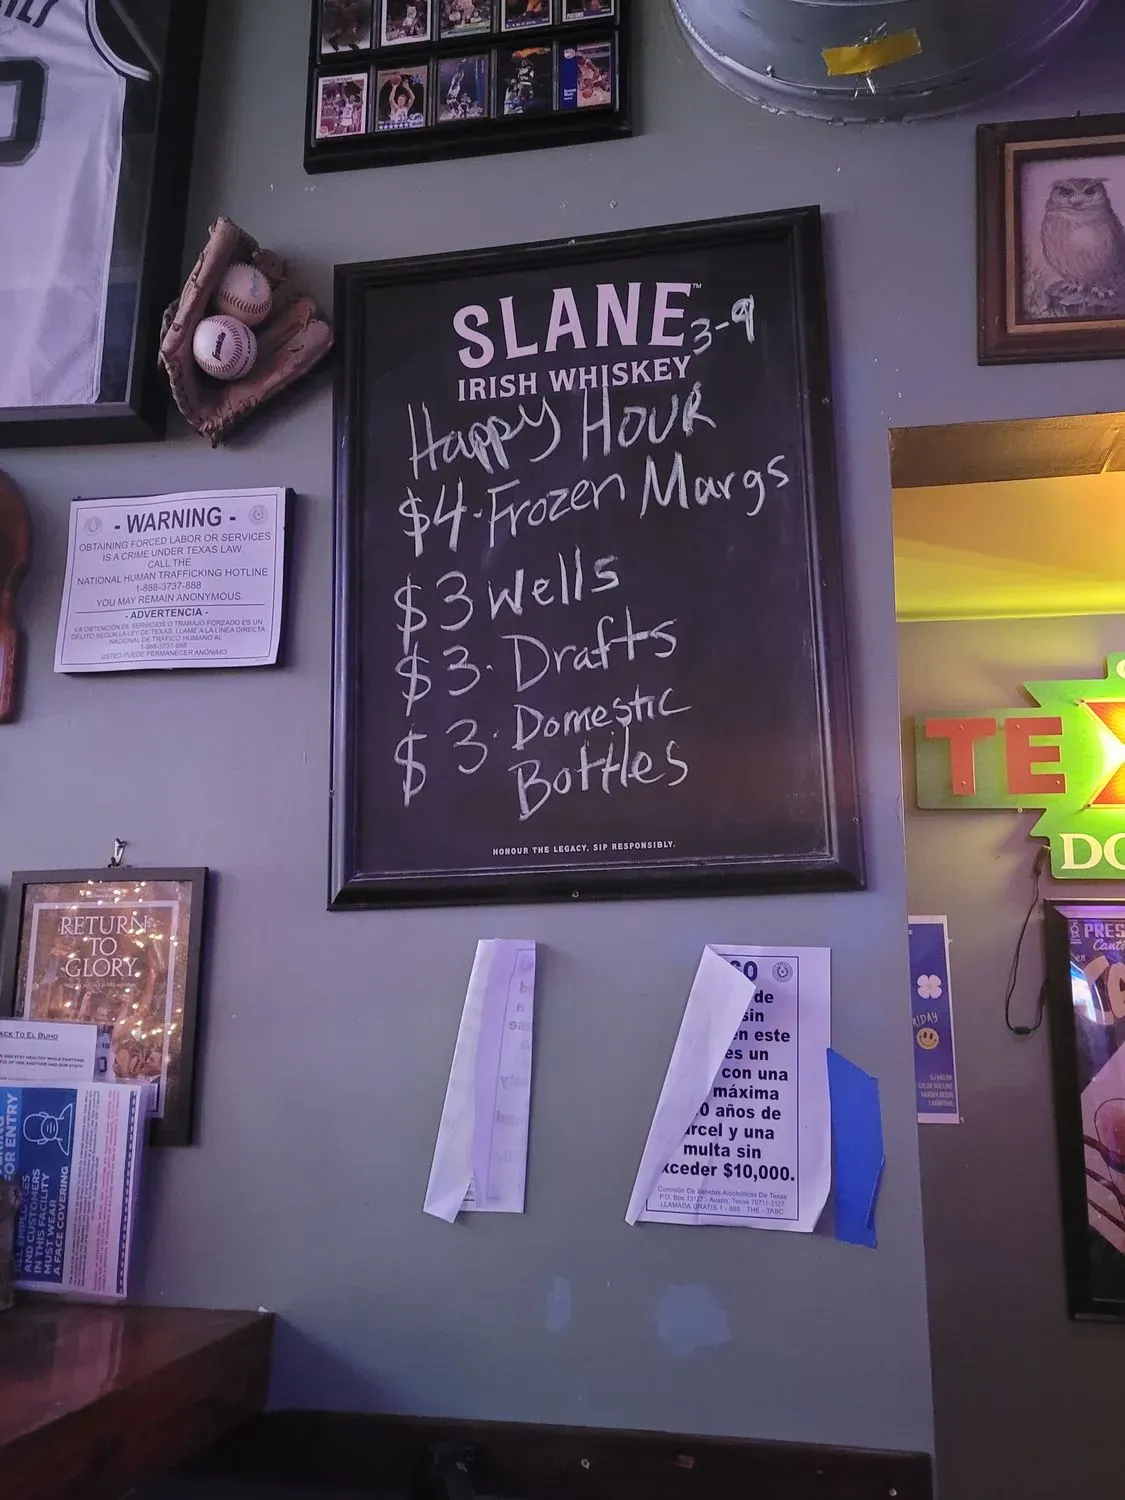 SLANE™
IRISH WHISKEY
3-9
Happy Hour
$4·Frozen Margs
$3 Wells
$3· Drafts
$3· Domestic
Bottles
HONOUR THE LEGACY. SIP RESPONSIBLY.
- WARNING -
OBTAINING FORCED LABOR OR SERVICES
IS A CRIME UNDER TEXAS LAW
CALL THE
NATIONAL HUMAN TRAFFICKING HOTLINE
1-888-3737-888
YOU MAY REMAIN ANONYMOUS.
- ADVERTENCIA -
LA OBTENCIÓN DE SERVICIOS O TRABAJO FORZADO ES UN
DELITO SEGÚN LA LEY DE TEXAS. LLAME A LA LÍNEA DIRECTA
NACIONAL DE TRÁFICO HUMANO AL
1-888-3737-888
USTED PUEDE PERMANECER ANÓNIMO.
TE
DO
RETURN
TO
GLORY
TO EL BUHO
OR ENTRY
ALL EMPLOYEES
AND CUSTOMERS
IN THIS FACILITY
MUST WEAR
A FACE COVERING
de
sin
en este
es un
con una
máxima
0 años de
rcel y una
multa sin
xceder $10,000.
Comisión De Bebidas Alcohólicas De Texas
P.O. Box 13127 - Austin, Texas 78711-3127
LLAMADA GRATIS 1 - 888 - THE - TABC
RIDAY
PRES